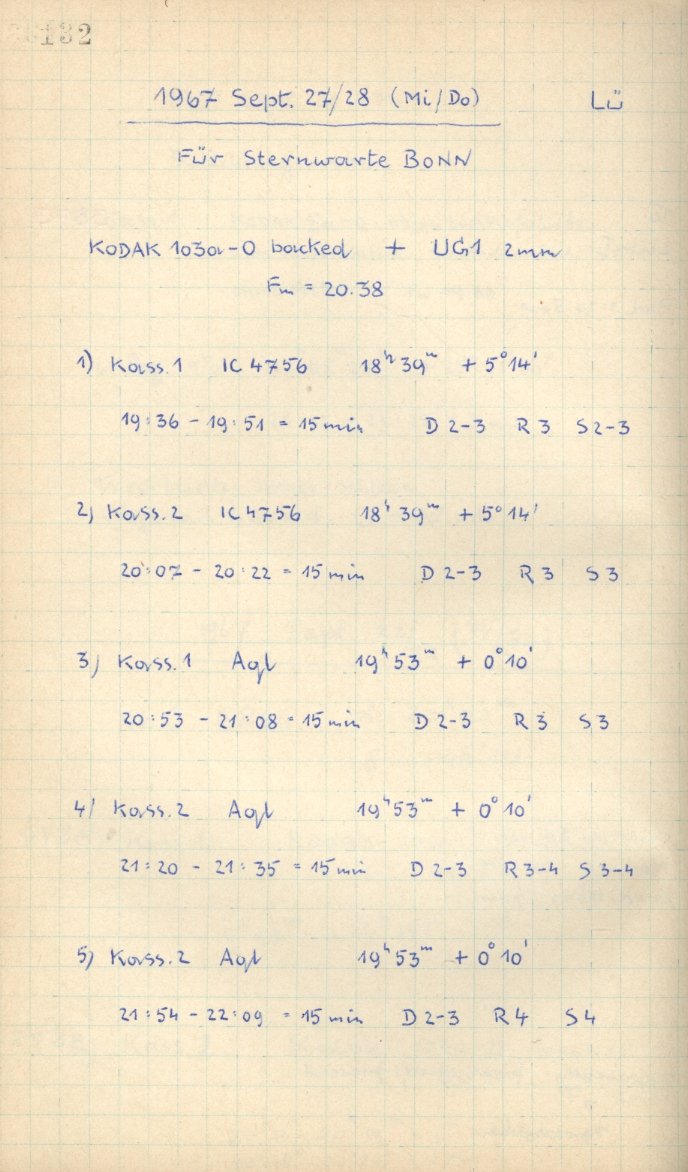 132
1967 Sept. 27/28 (Mi/Do) Lü
Für Sternwarte BONN
KODAK 103a-O backed + UG1 2mm
Fm = 20.38
1) Kass. 1 IC 4756 18ʰ 39ᵐ + 5° 14'
19:36 - 19:51 = 15 min D 2-3 R 3 S 2-3
2) Kass. 2 IC 4756 18ʰ 39ᵐ + 5° 14'
20:07 - 20:22 = 15 min D 2-3 R 3 S 3
3) Kass. 1 Aql 19ʰ 53ᵐ + 0° 10'
20:53 - 21:08 = 15 min D 2-3 R 3 S 3
4) Kass. 2 Aql 19ʰ 53ᵐ + 0° 10'
21:20 - 21:35 = 15 min D 2-3 R 3-4 S 3-4
5) Kass. 2 Aql 19ʰ 53ᵐ + 0° 10'
21:54 - 22:09 = 15 min D 2-3 R 4 S 4